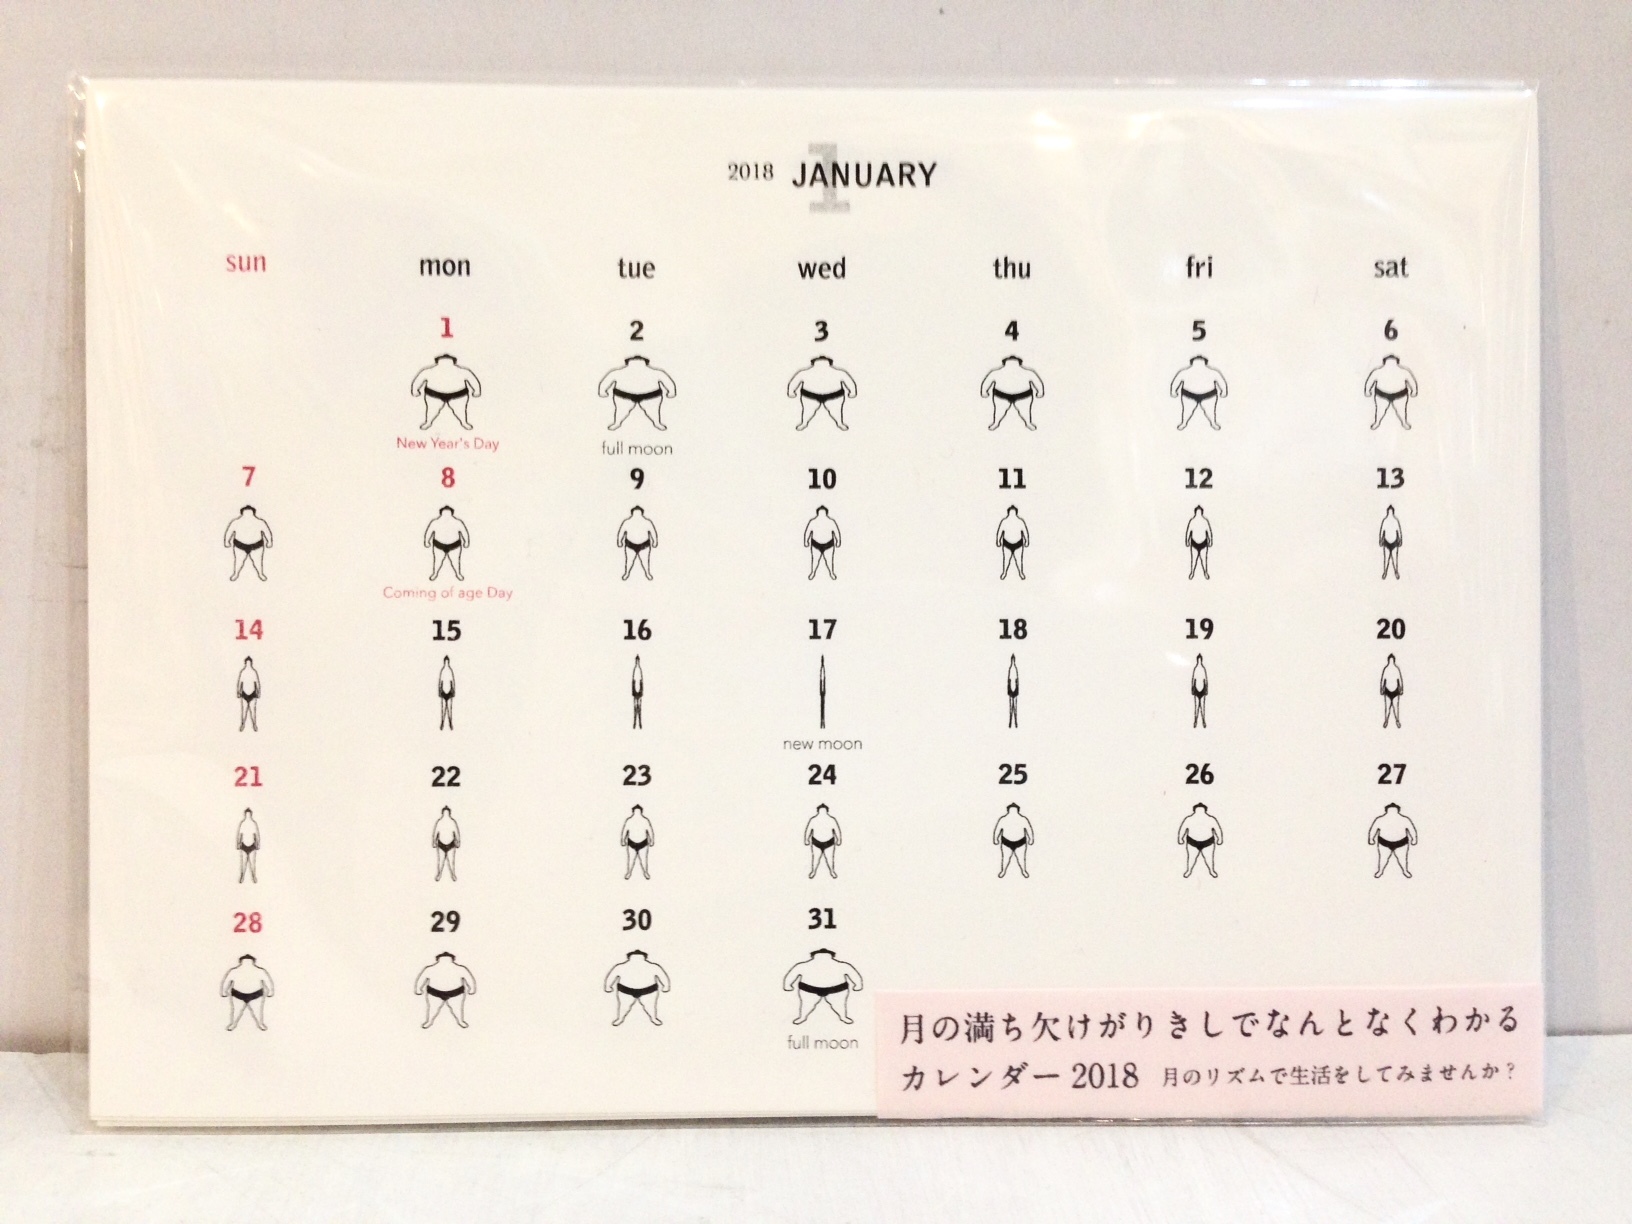 2018 1 JANUARY
sun mon tue wed thu fri sat
1 2 3 4 5 6
New Year's Day full moon
7 8 9 10 11 12 13
Coming of age Day
14 15 16 17 18 19 20
new moon
21 22 23 24 25 26 27
28 29 30 31
full moon
月の満ち欠けがりきしでなんとなくわかる
カレンダー 2018 月のリズムで生活をしてみませんか?